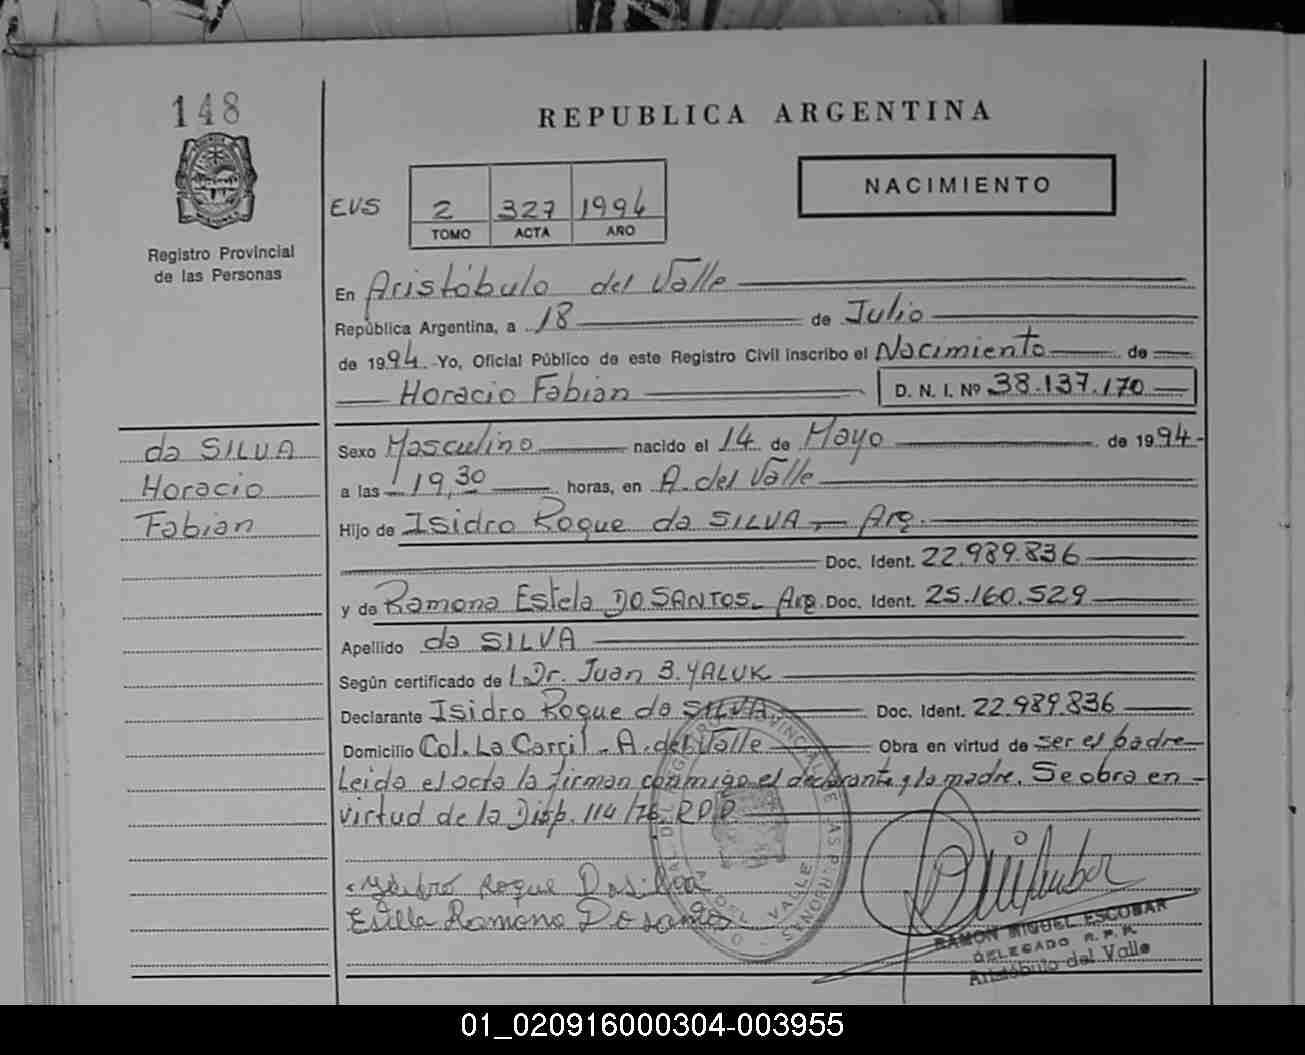 148
REPUBLICA ARGENTINA
NACIMIENTO
EVS 2 327 1994
TOMO ACTA AÑO
Registro Provincial
de las Personas
En Aristóbulo del Valle
República Argentina, a 18 de Julio
de 1994 Yo, Oficial Público de este Registro Civil inscribo el Nacimiento de
Horacio Fabian D. N. I. Nº 38.137.170
da SILVA
Horacio
Fabian
Sexo Masculino nacido el 14 de Mayo de 1994
a las 19,30 horas, en A. del Valle
Hijo de Isidro Roque da SILVA Arg.
Doc. Ident. 22.989.836
y de Ramona Estela DO SANTOS Arg. Doc. Ident. 25.160.529
Apellido da SILVA
Según certificado de Dr. Juan B. YALUK
Declarante Isidro Roque da SILVA Doc. Ident. 22.989.836
Domicilio Col. La A. del Valle Obra en virtud de ser el padre
Leida el acta la firman conmigo el declarante y la madre. Se obra en
virtud de la Disp. 114/76. R.P.P.
Roque Dasilva
Estella Ramona Dosantos
DEL VALLE
RAMON MIGUEL ESCOBAR
DELEGADO R.P.P.
Aristóbulo del Valle
01_020916000304-003955